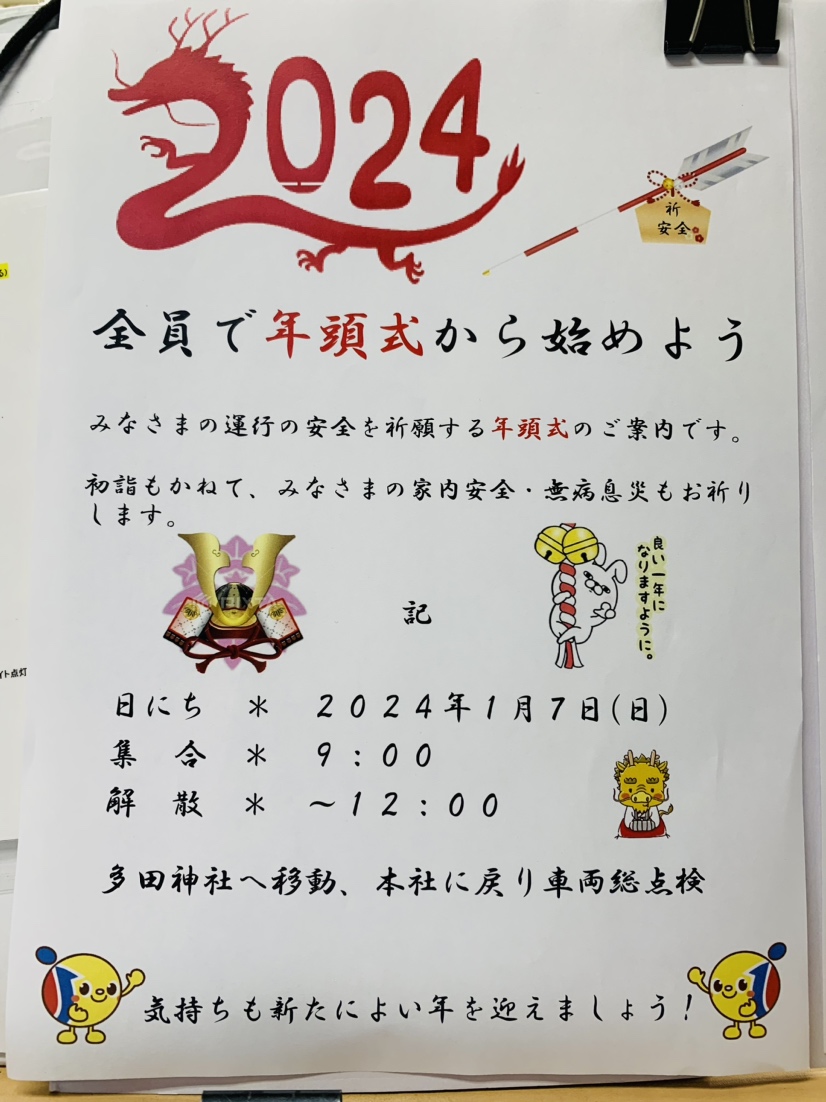 2024
祈
安全
全員で年頭式から始めよう
みなさまの運行の安全を祈願する年頭式のご案内です。
初詣もかねて、みなさまの家内安全・無病息災もお祈り
します。
良い一年に
なりますように。
記
イト点灯
日にち ＊ ２０２４年１月７日(日)
集 合 ＊ ９：００
解 散 ＊ ～１２：００
多田神社へ移動、本社に戻り車両総点検
気持ちも新たによい年を迎えましょう！